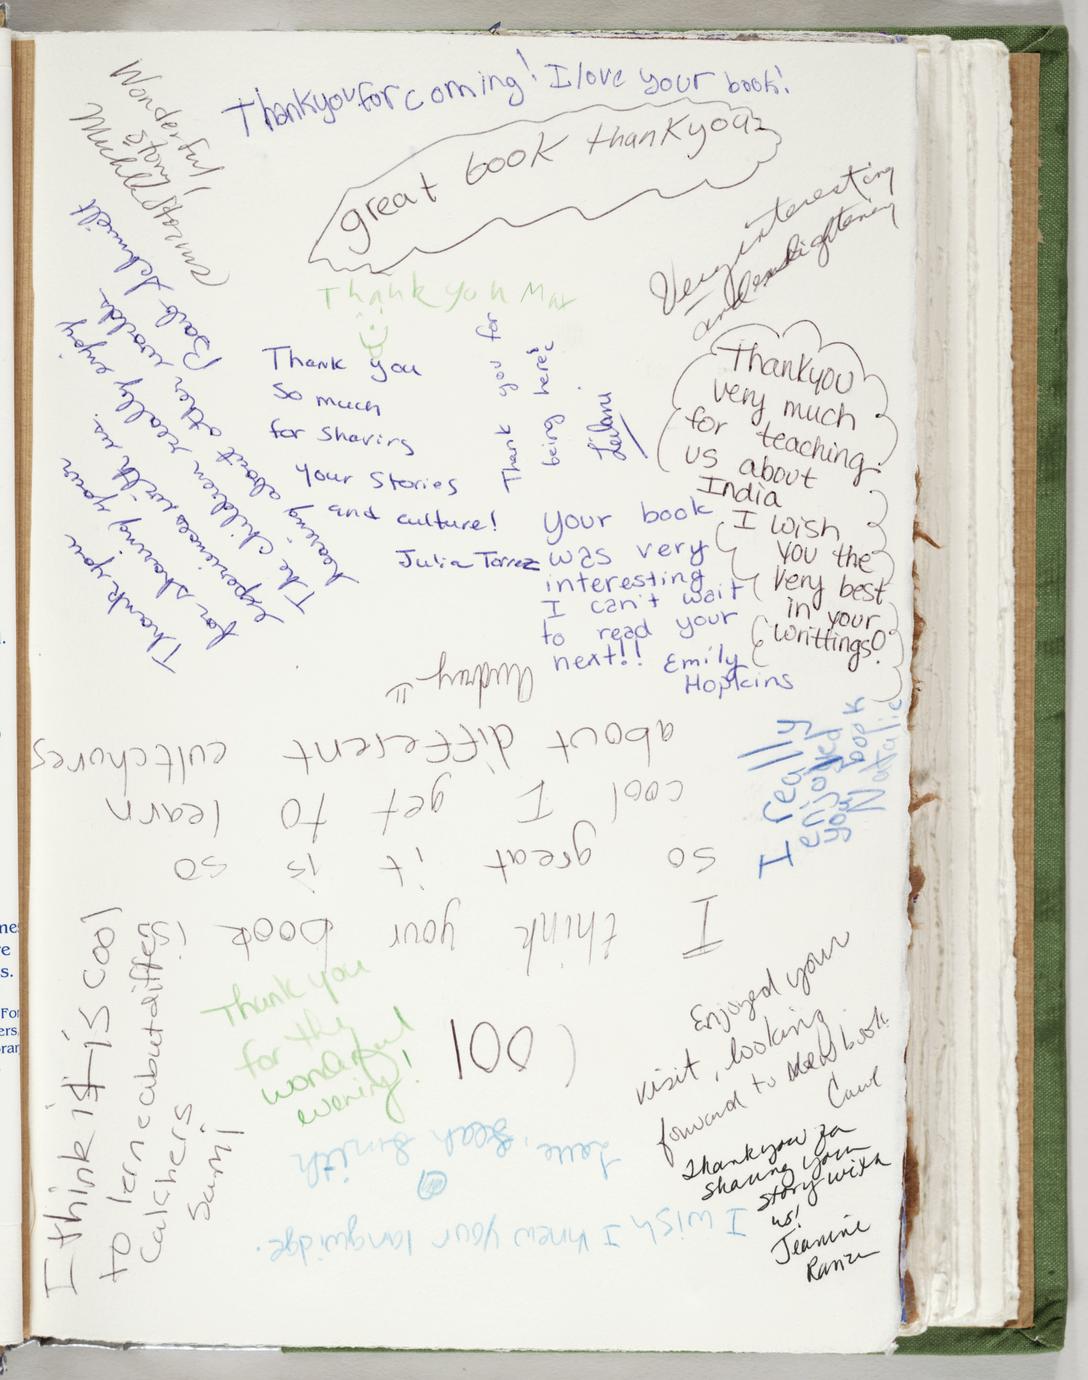 Wonderful
story!
Thank you for coming! I love your book!
great book thank you
Very interesting
and enlightening
Thank you
for sharing your
experiences with us.
The children really enjoy
hearing about other worlds.
Barb Schmidt
Thank you
Thank you
so much
for sharing
your stories
and culture!
Julia Torrez
Thank you for
being here!
Thankyou
very much
for teaching
us about
India
I wish
you the
very best
in your
writtings!
your book
was very
interesting
I can't wait
to read your
next!!
Emily
Hopkins
I really
enjoyed
your book
Natalie
I think your book is
so great it is so
cool I get to learn
about different cultchures
Audrey
I think it is cool
to lerne about diffe
calchers
Sami
Thank you
for the
wonderful
evening!
Cool
I wish I knew your langwidge.
Love, Leah Smith
Enjoyed your
visit, looking
forward to book
Thankyou for
sharing your
story with
us!
Jeanine